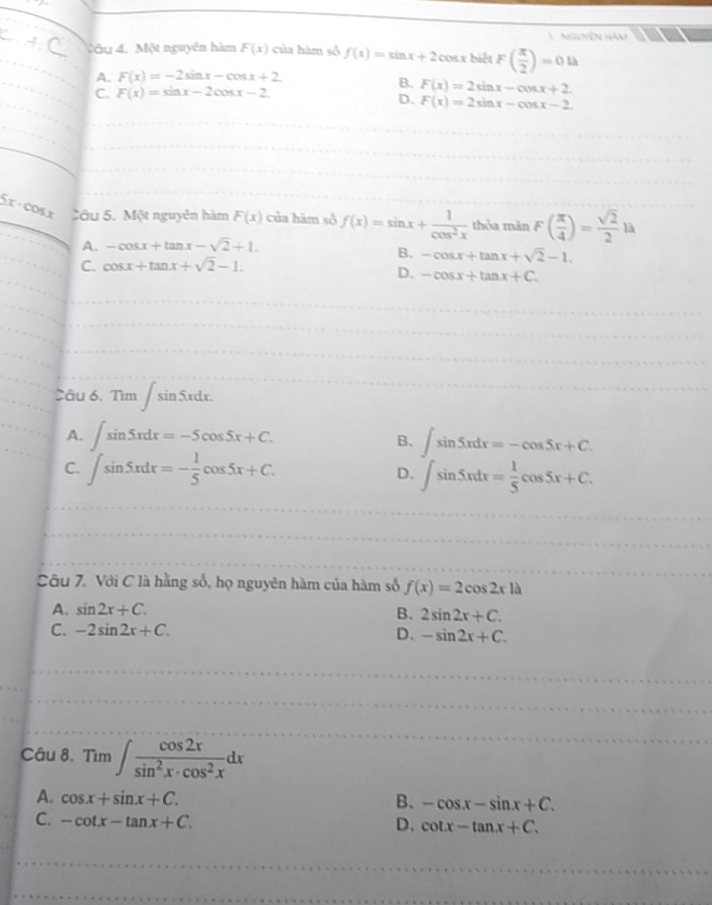 1. NGUYÊN HÀM
+ C
Câu 4. Một nguyên hàm F(x) của hàm số f(x) = sin x + 2cos x biết F(π/2) = 0 là
A. F(x) = −2sin x − cos x + 2.
B. F(x) = 2sin x − cos x + 2.
C. F(x) = sin x − 2cos x − 2.
D. F(x) = 2sin x − cos x − 2.
5x · cos x
Câu 5. Một nguyên hàm F(x) của hàm số f(x) = sin x + 1/cos² x thỏa mãn F(π/4) = √2/2 là
A. −cos x + tan x − √2 + 1.
B. −cos x + tan x + √2 − 1.
C. cos x + tan x + √2 − 1.
D. −cos x + tan x + C.
Câu 6. Tìm ∫ sin 5xdx.
A. ∫ sin 5xdx = −5 cos 5x + C.
B. ∫ sin 5xdx = −cos 5x + C.
C. ∫ sin 5xdx = −1/5 cos 5x + C.
D. ∫ sin 5xdx = 1/5 cos 5x + C.
Câu 7. Với C là hằng số, họ nguyên hàm của hàm số f(x) = 2 cos 2x là
A. sin 2x + C.
B. 2 sin 2x + C.
C. −2 sin 2x + C.
D. −sin 2x + C.
Câu 8. Tìm ∫ cos 2x/(sin² x · cos² x) dx
A. cos x + sin x + C.
B. −cos x − sin x + C.
C. −cot x − tan x + C.
D. cot x − tan x + C.